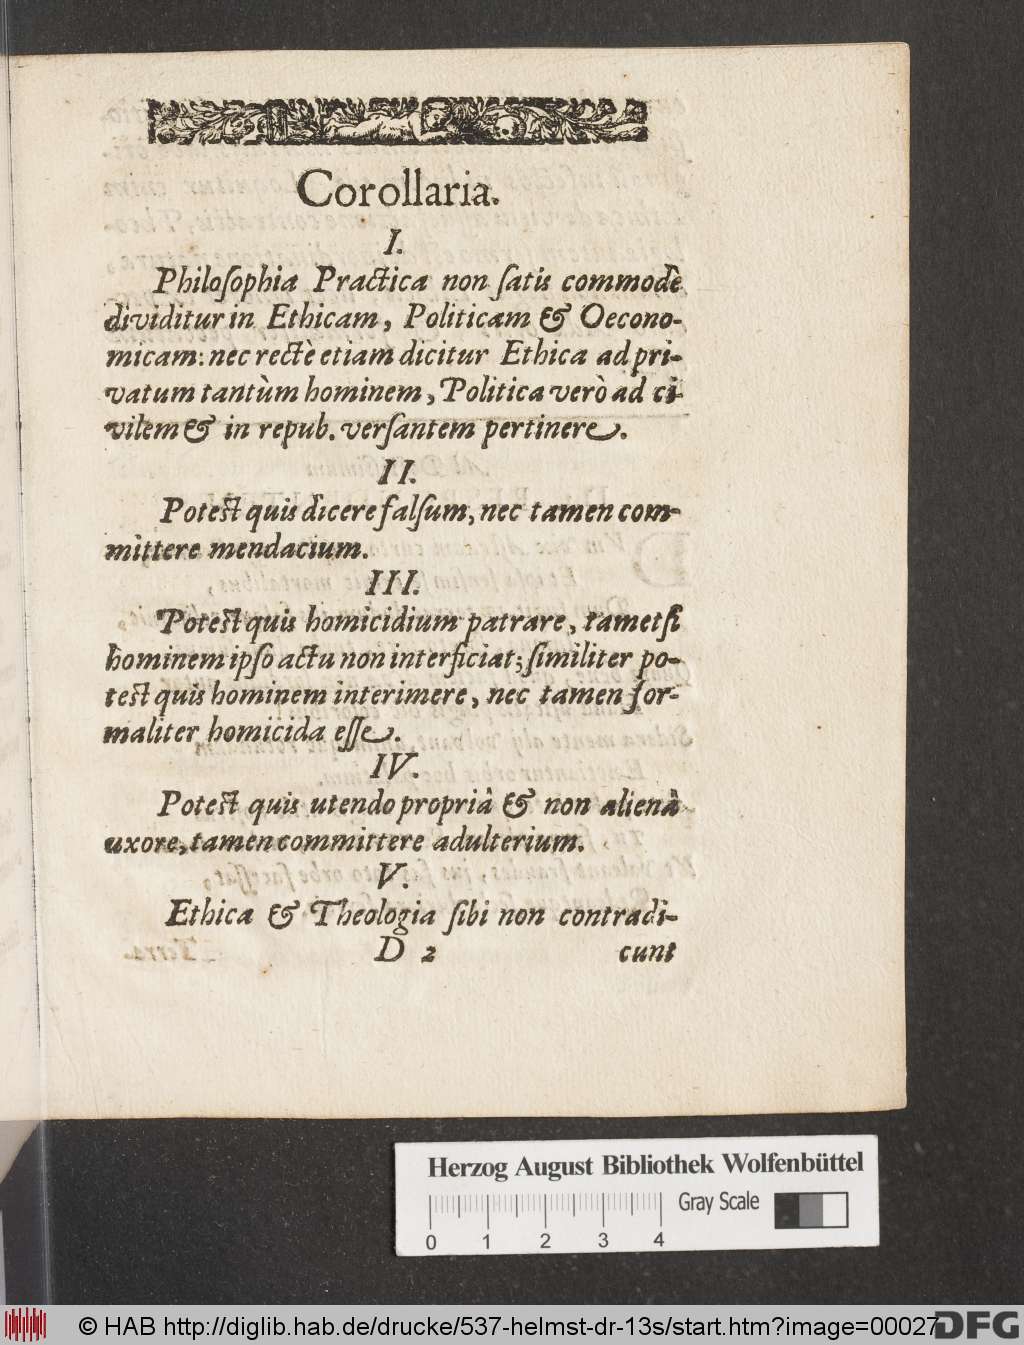 Corollaria.
I.
Philoſophia Practica non ſatis commodè
dividitur in Ethicam, Politicam & Oecono-
micam: nec rectè etiam dicitur Ethica ad pri-
vatum tantùm hominem, Politica verò ad ci-
vilem & in repub. verſantem pertinere.
II.
Potest quis dicere falſum, nec tamen com-
mittere mendacium.
III.
Potest quis homicidium patrare, tametſi
hominem ipſo actu non interficiat; ſimiliter po-
test quis hominem interimere, nec tamen for-
maliter homicida eſſe.
IV.
Potest quis utendo propriâ & non alienâ
uxore, tamen committere adulterium.
V.
Ethica & Theologia ſibi non contradi-
D 2 cunt
Herzog August Bibliothek Wolfenbüttel
Gray Scale
0 1 2 3 4
© HAB http://diglib.hab.de/drucke/537-helmst-dr-13s/start.htm?image=00027
DFG